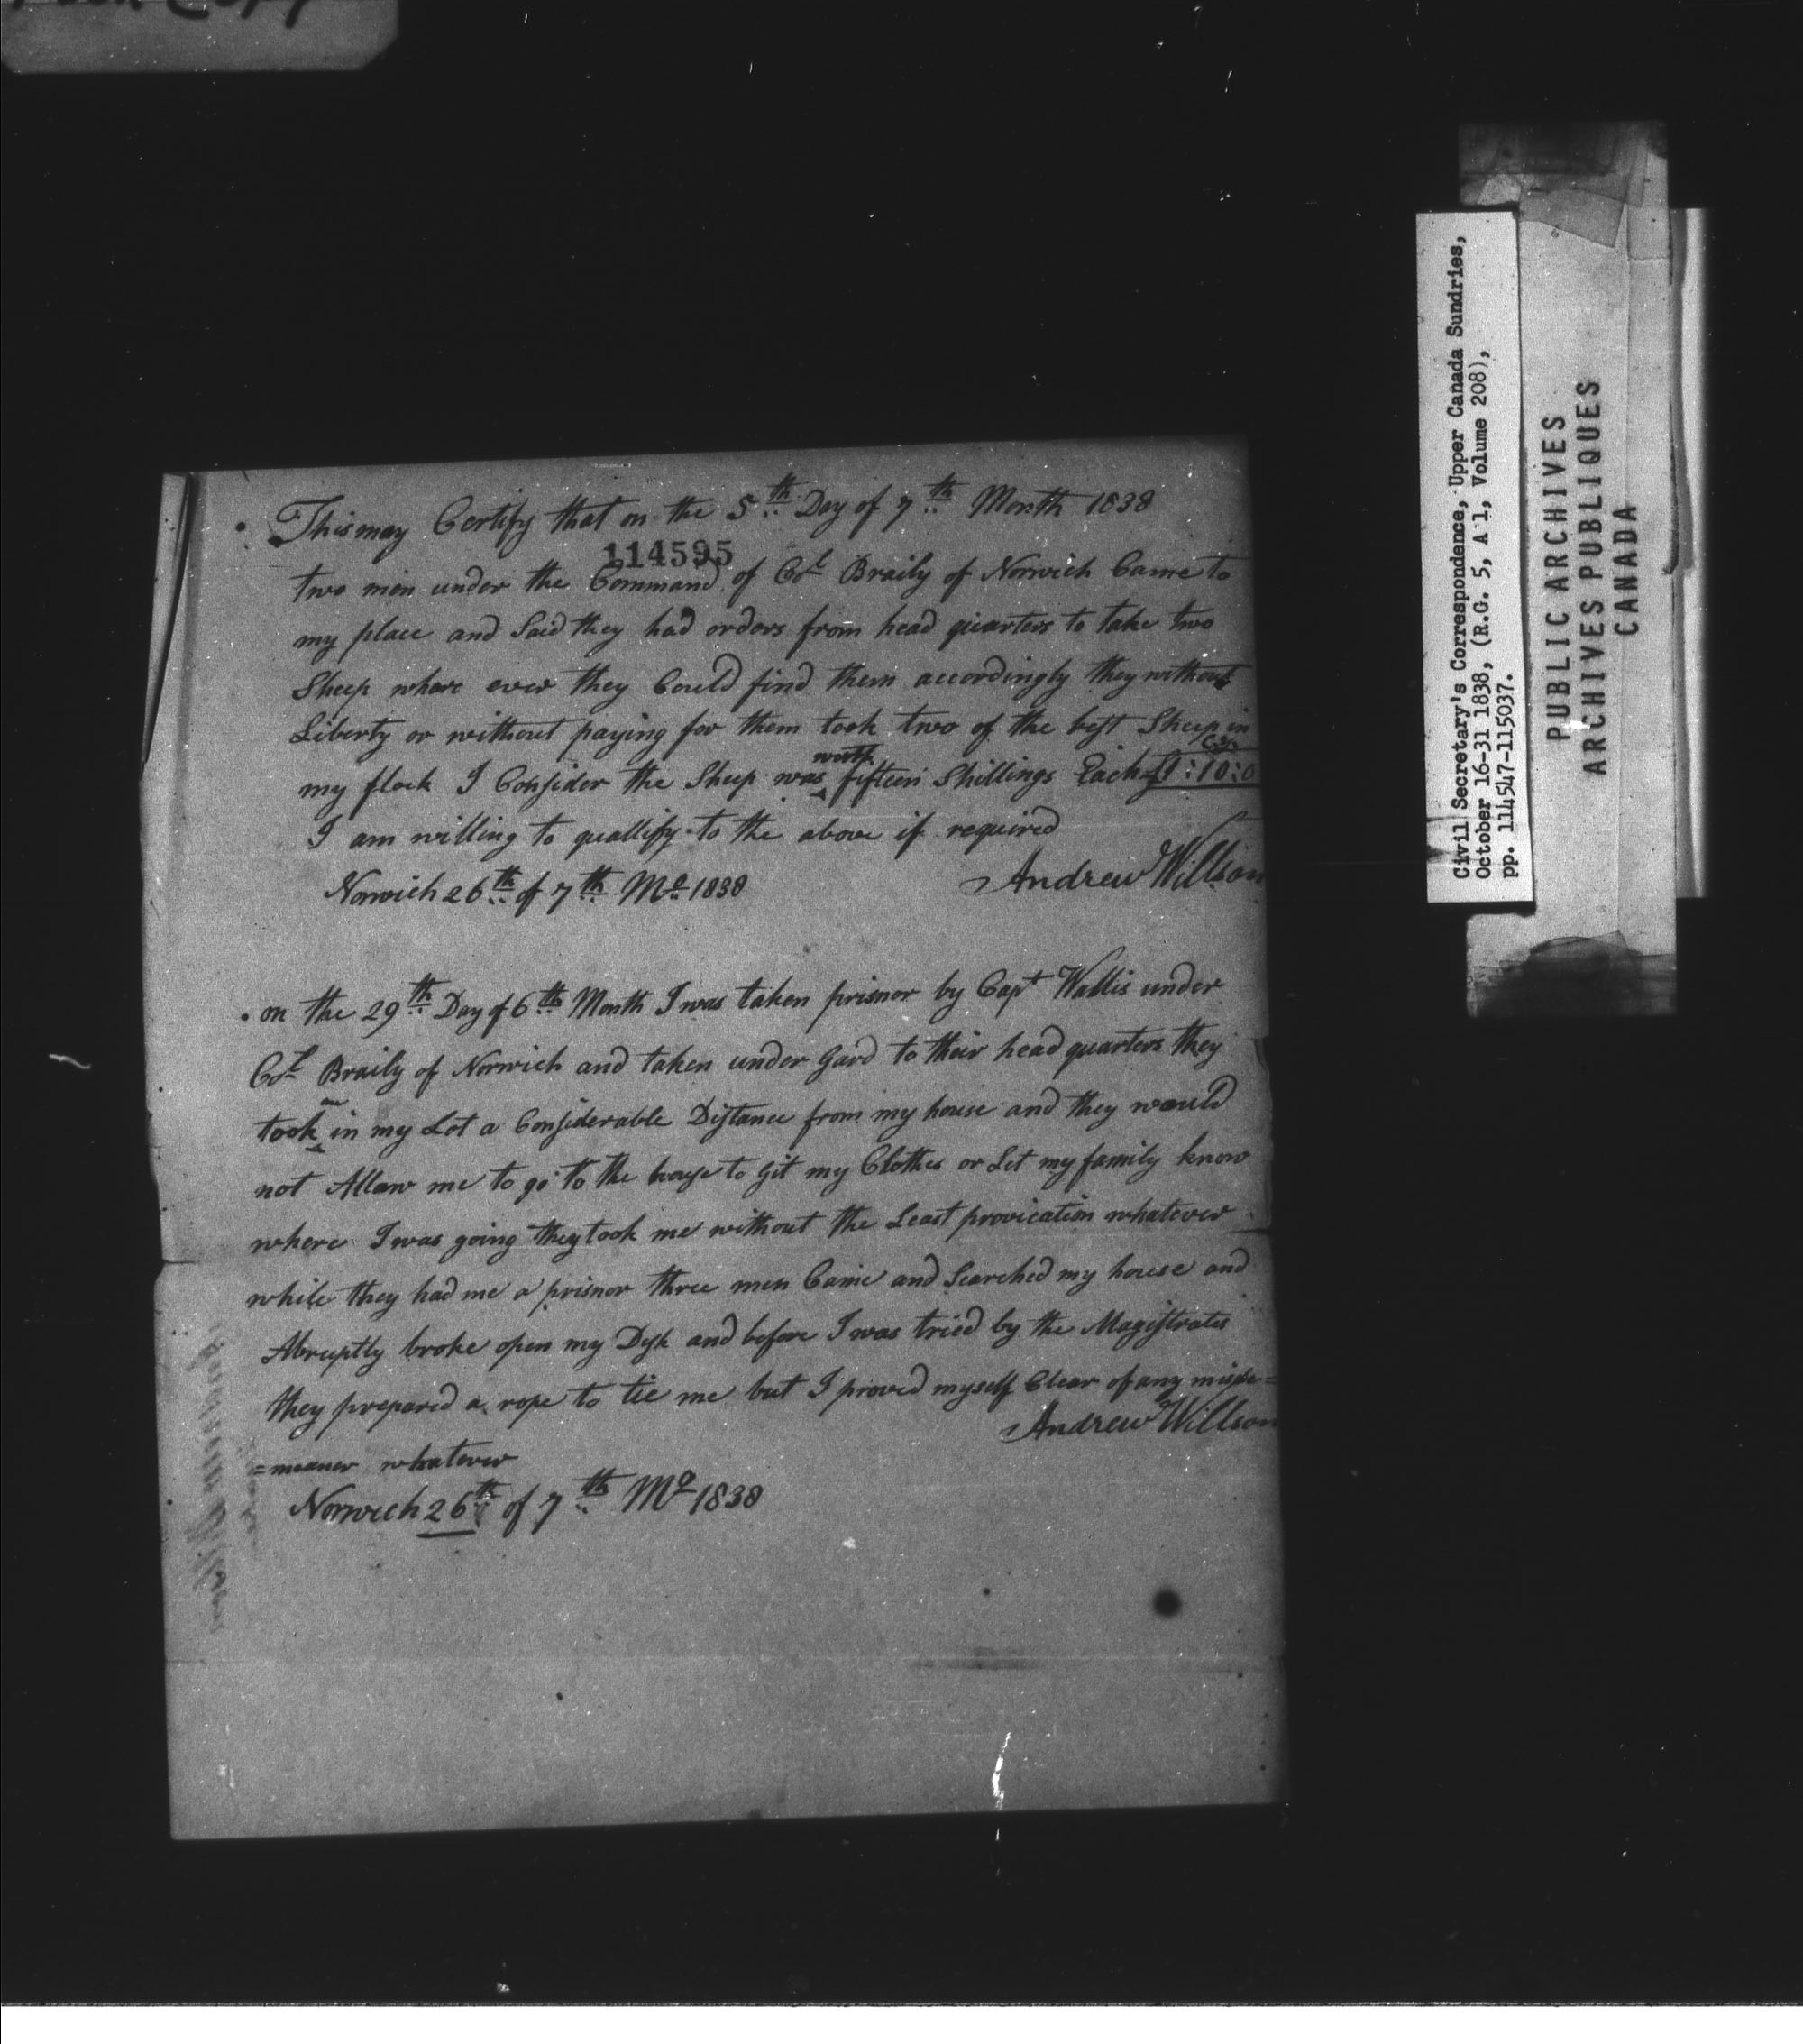 This may Certify that on the 5th Day of 7th Month 1838
114595
two men under the Command of Col Braily of Norwich Came to
my place and Said they had orders from head quarters to take two
Sheep where ever they Could find them accordingly they without
Liberty or without paying for them took two of the best Sheep in
my flock I Consider the Sheep was worth fifteen Shillings Each £1:10:0
I am willing to quallify to the above if required
Norwich 26th of 7th Mo 1838
Andrew Willson
on the 29th Day of 6th Month I was taken prisnor by Capt Wallis under
Col Braily of Norwich and taken under Gard to their head quarters they
took me in my Lot a Considerable Distance from my house and they would
not Allow me to go to the house to Git my Clothes or Let my family know
where I was going they took me without the Least provication whatever
while they had me a prisnor three men Came and Searched my house and
Abruptly broke open my Desk and before I was tried by the Magistrates
they prepared a rope to tie me but I proved myself Clear of any misde=
=meaner whatever
Andrew Willson
Norwich 26th of 7th Mo 1838
Civil Secretary's Correspondence, Upper Canada Sundries,
October 16-31 1838, (R.G. 5, A 1, Volume 208),
pp. 114547-115037.
PUBLIC ARCHIVES
ARCHIVES PUBLIQUES
CANADA